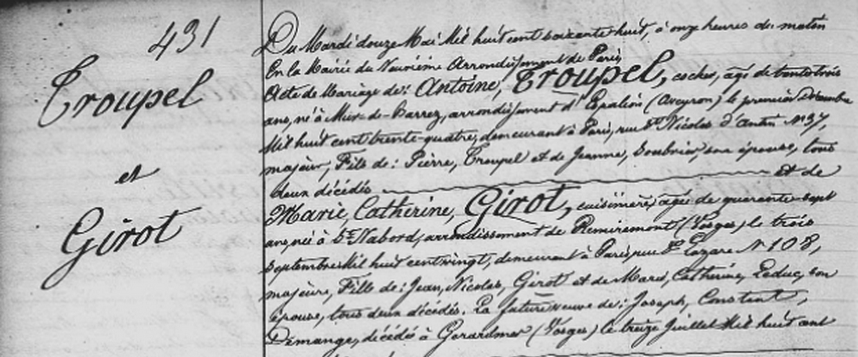 431
Troupel
et
Girot
Du Mardi douze Mai Mil huit cent soixante huit, à onze heures du matin
En la Mairie du Neuvième Arrondissement de Paris
Acte de Mariage de: Antoine, Troupel, cocher, âgé de trente trois
ans, né à Mur-de-Barrez, arrondissement d'Espalion (Aveyron) le premier Décembre
Mil huit cent trente-quatre, demeurant à Paris, rue St Nicolas d'Antin N° 37,
majeur, Fils de: Pierre, Troupel et de Jeanne, Soubrier, son épouse, tous
deux décédés et de
Marie, Catherine, Girot, cuisinière, âgée de quarante-sept
ans, né à St Nabord, arrondissement de Remiremont (Vosges) le trois
Septembre Mil huit cent vingt, demeurant à Paris, rue St Lazare N° 108,
majeure, Fille de: Jean, Nicolas, Girot et de Catherine, Leduc, son
épouse, tous deux décédés. La future veuve de: Joseph, Constant,
Demange, décédé à Gerardmer (Vosges) le treize Juillet Mil huit cent